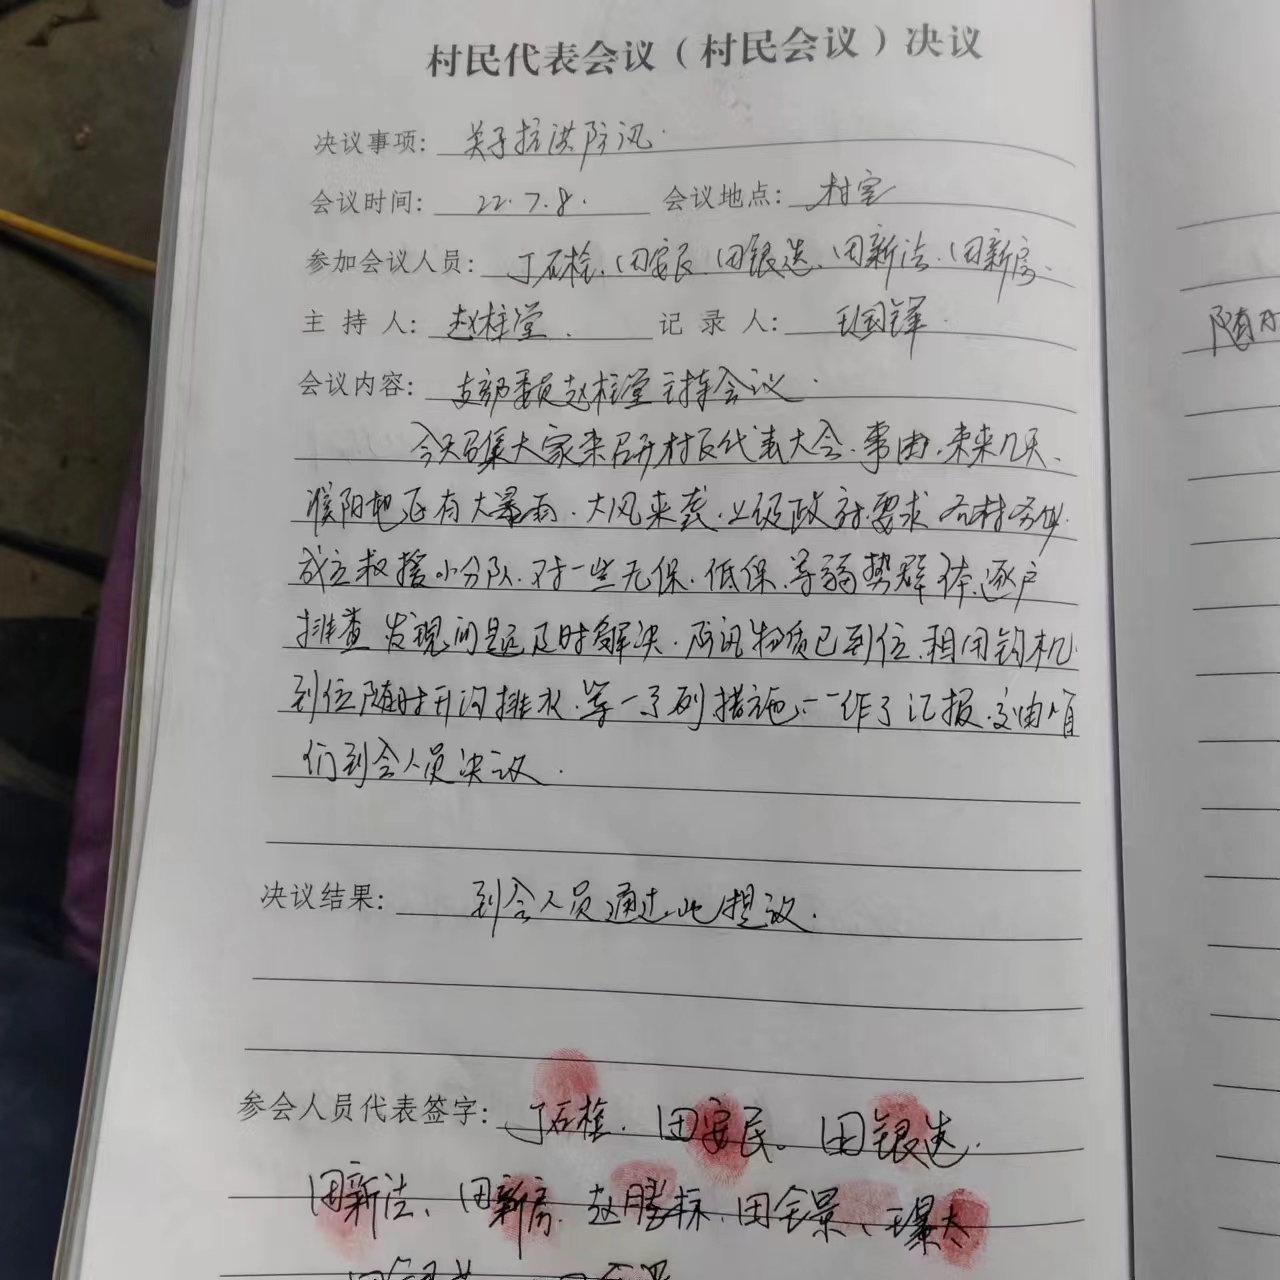 村民代表会议（村民会议）决议
决议事项： 关于抗洪防汛.
会议时间： 22.7.8. 会议地点： 村室
参加会议人员： 丁石栓、田安民、田银选、田新法、田新房、
主持人： 赵柱堂. 记录人： 王国锋.
会议内容： 支部委员赵柱堂主持会议.
今天召集大家来召开村民代表大会.事由.未来几天.
濮阳地区有大暴雨.大风来袭.上级政府要求各村务必
成立救援小分队.对一些五保.低保.等弱势群体逐户
排查 发现问题及时解决.防汛物质已到位.租用钩机
到位随时开沟排水.等一系列措施.一一作了汇报.交由
们到会人员决议.
决议结果： 到会人员通过此提议.
参会人员代表签字： 丁石栓. 田安民. 田银选.
田新法、田新房. 赵腾 田全景、王
随